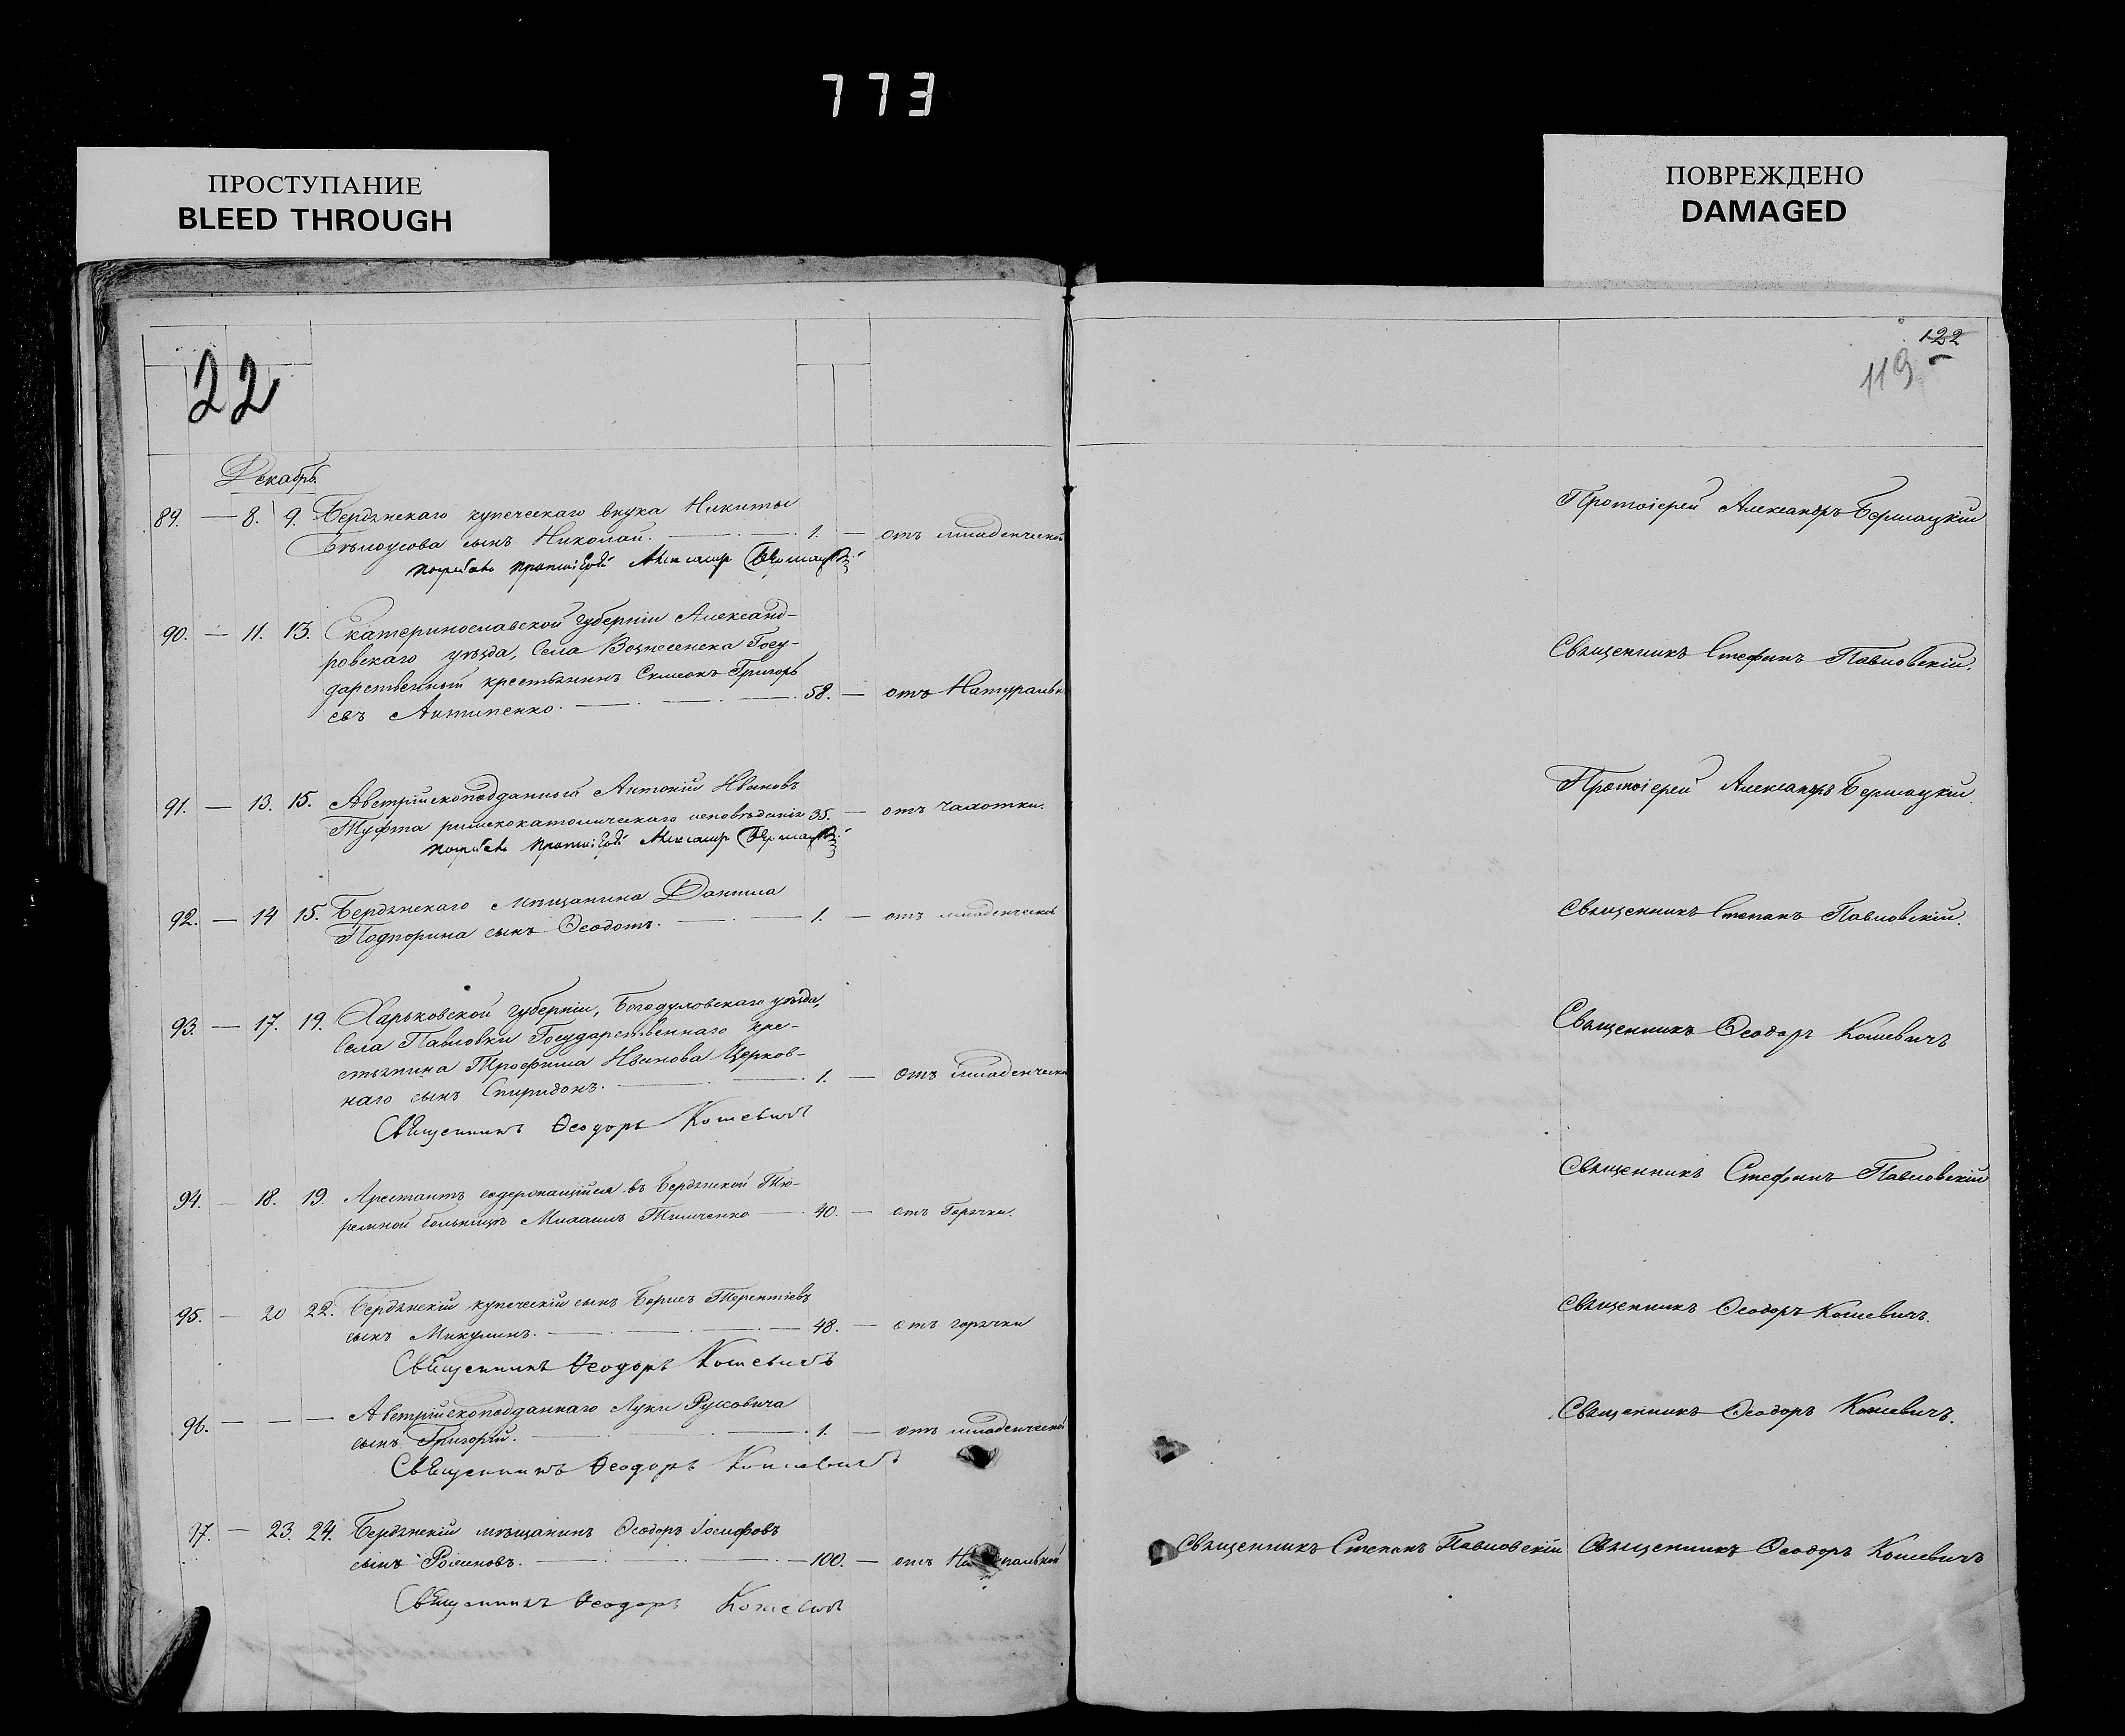 773
ПРОСТУПАНИЕ
BLEED THROUGH
ПОВРЕЖДЕНО
DAMAGED
122
119
22
Декабрь.
89. — 8. 9. Бердянскаго купеческаго внука Никиты
Бѣлоусова сынъ Николай. — 1. — отъ младенческой
Протоіерей Александръ Бермацкій
Погребалъ Протоіерей Александръ Бермацкій
90. — 11. 13. Екатеринославской губерніи Александ-
ровскаго уѣзда, Села Вознесенска Госу-
дарственный крестьянинъ Симеонъ Григорь
евъ Антипенко. — 58. — отъ Натуральн
Священникъ Стефанъ Павловскій.
91. — 13. 15. Австрійскоподданный Антоній Ивановъ
Туфта римскокатолическаго исповѣданія 35. — отъ чахотки.
Протоіерей Александръ Бермацкій.
Погребалъ Протоіерей Александръ Бермацкій
92. — 14 15. Бердянскаго мѣщанина Данила
Подпорина сынъ Ѳеодотъ. — 1. — отъ младенческой
Священникъ Степанъ Павловскій.
93. — 17. 19. Харьковской губерніи, Богодуховскаго уѣзда,
Села Павловки Государственнаго кре-
стьянина Трофима Иванова Церков-
наго сынъ Спиридонъ. — 1. — отъ младенческой
Священникъ Ѳеодоръ Кошевичъ
Священникъ Ѳеодоръ Кошевичъ
94. — 18. 19. Арестантъ содержащійся въ Бердянской Тю-
ремной больницѣ Михаилъ Тимченко — 40. — отъ Горячки.
Священникъ Стефанъ Павловскій
95. — 20 22. Бердянскій купеческій сынъ Борисъ Терентіевъ
сынъ Микулинъ. — 48. — отъ горячки
Священникъ Ѳеодоръ Кошевичъ.
Священникъ Ѳеодоръ Кошевичъ
96. — — — Австрійскоподданнаго Луки Русковича
сынъ Григорій. — 1. — отъ младенческой
Священникъ Ѳеодоръ Кошевичъ.
Священникъ Ѳеодоръ Кошевичъ
97. — 23. 24. Бердянскій мѣщанинъ Ѳеодоръ Іосифовъ
сынъ — 100. — отъ
Священникъ Степанъ Павловскій Священникъ Ѳеодоръ Кошевичъ
Священникъ Ѳеодоръ Кошевичъ